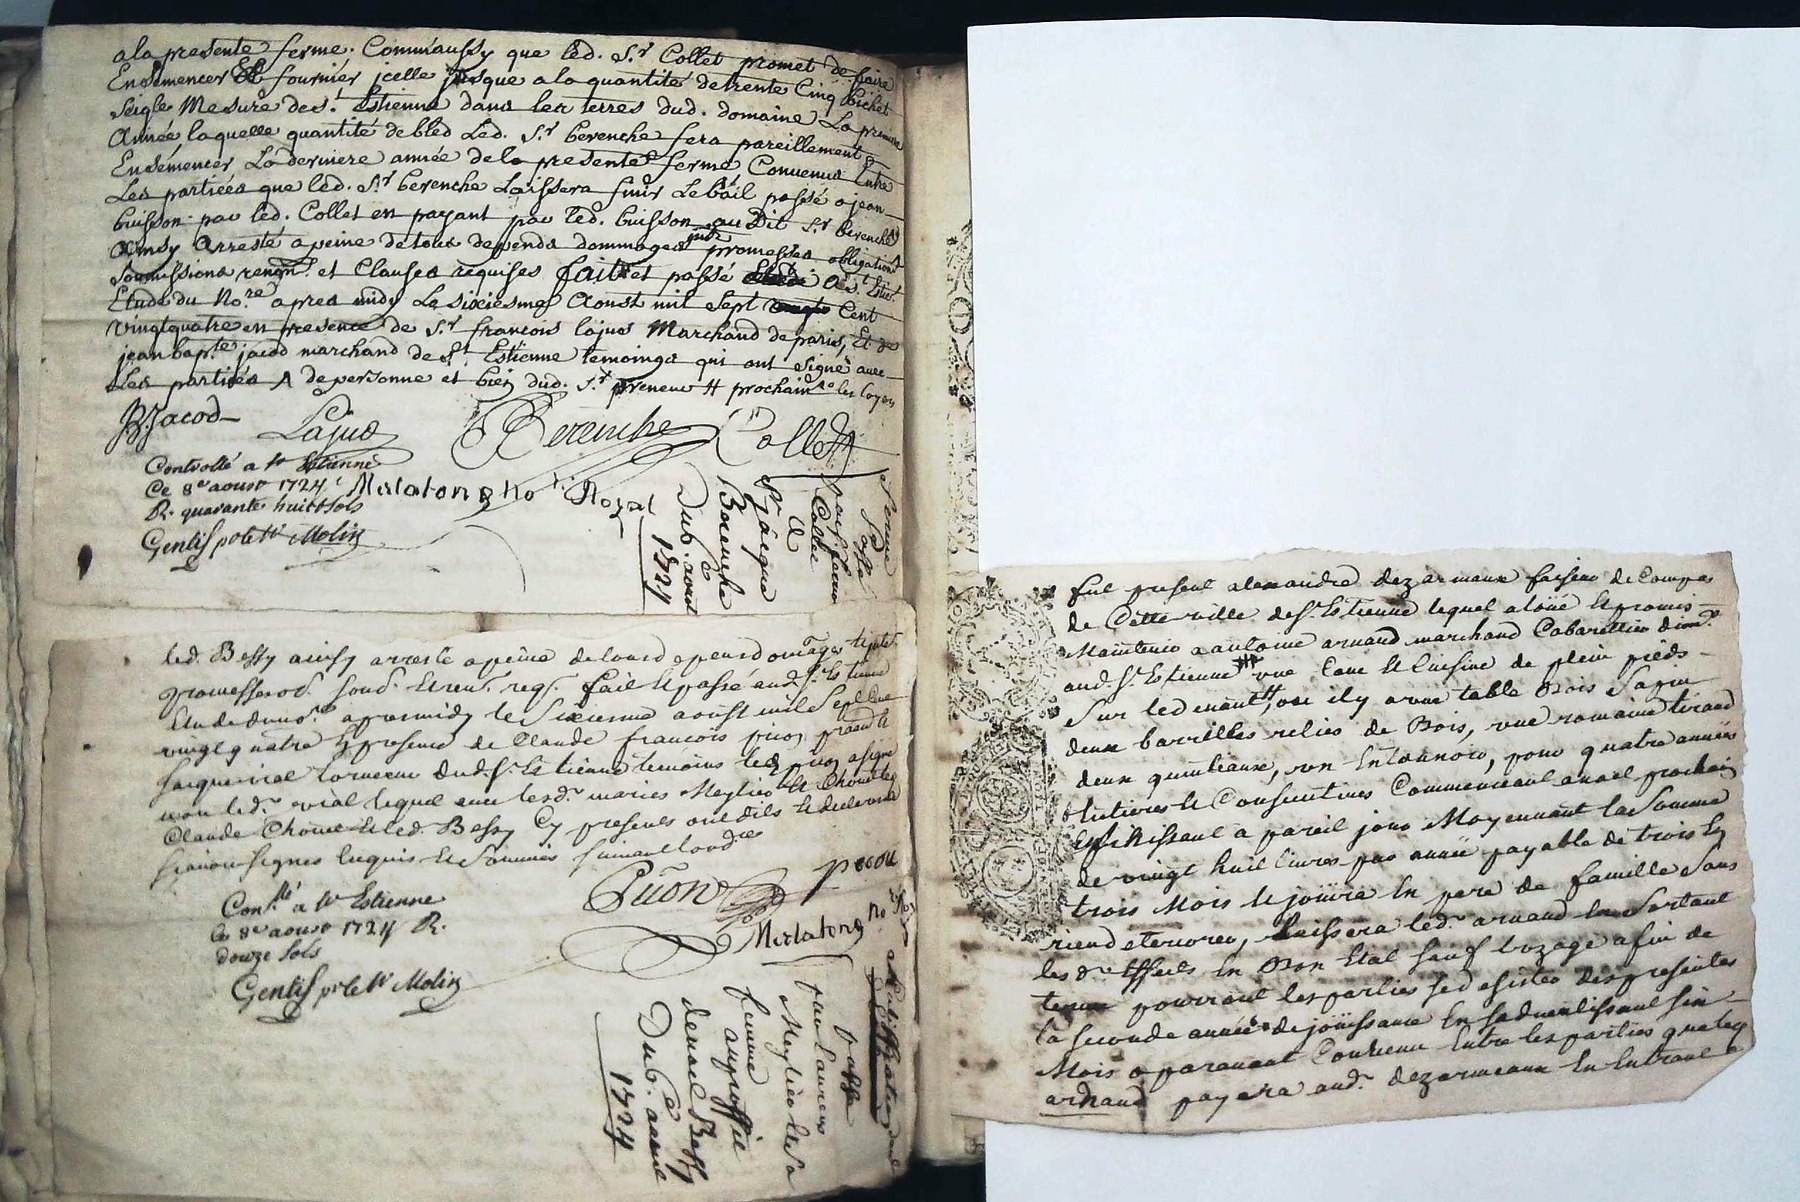 a la presente ferme. Comm'aussy que led. Sr Collet promet de faire
Ensemencer Et fournir jcelle jusque a la quantité de trente Cinq bichet
Seigle Mesure de St Estienne dans les terres dud. domaine La premiere
Année laquelle quantité de bled Led. Sr berenche fera pareillement
Ensemencer La derniere année de la presente ferme Convenus Entre
Les partiees que led. Sr berenche Laissera finir Le bail passé a jean
buisson par led. Collet en payant par led. buisson au Dit Sr berenche
Ainsy Arresté a peine de tous depends dommages promesses obligations
Soumissions renon. et Clauses requises fait et passé a St Estne
Etude du No.re apres midy Le sixiesme Aoust mil sept Cent
Vingtquatre en presence de Sr francois lajus Marchand de paris, Et de
jean bapte jacod marchand de St Estienne temoings qui ont signé avec
Les partiées de personne et bien dud. Sr preneur # prochain les loyers
JBJacod
Lajus
Berenche
Collet
Controllé a St Estienne
Ce 8e aoust 1724
R. quarante huit sols
Gentil po le Sr Molin
Merlatong No.re Royal
ferme
passé
par sieur
Collet
A
Sr jacque
Berenche
Du 6e aoust
1724
led. Bessy ainsy arresté a peine de tous depens domages
promesses od. soub. et ren. req. fait et passé aud. St Estienne
Etude du no.re apres midy le Sixieme aoust mil Sept Cent
vingt quatre En presence de Claude francois
jacque vial tourneur dud. St Estienne temoins signé
non led. vial lequel avec lesd. mariés Meylieu
Claude Chome et led. Bessy Cy presents ont dits et declarés
scavoir signer Enquis et Sommés suivant lord.ce
Con.llé a St Estienne
Ce 8e aoust 1724 R.
douze sols
Gentil pr le Sr Molin
Merlatong no.re
passé
par Laurens
Meylieu et Sa
femme
au proffit
de noel Bessy
Du 6e aoust
1724
fut present alexandre dezarmaux faiseur de Compas
de Cette ville de St Estienne lequel a loüé et promis
Maintenir a antoine arnaud marchand Cabarettier dem.t
aud. St Estienne une Cave et Cuisine de plein pieds
Sur led. ou il y a une table Bois Sapin
deux barrilles reliés de Bois, une romaine tirand
deux quinteaux, un Entonnoir, pour quatre années
Entieres et Consecutives Commenceant a noel prochain
et finissant a pareil jour Moyennant la Somme
de vingt huit livres par année payable de trois En
trois Mois et joüira En pere de famille Sans
riend eteriorer, Laissera led. arnaud En Sortant
les d. Effects En Bon Etat Sauf l'uzage afin de
pourront les parties Se desister des presentes
la Seconde année de joüissance En Sadvertissant Six
Mois auparavant Convenu Entre les parties que led.
arnaud payera aud. dezarmeaux En Entrant